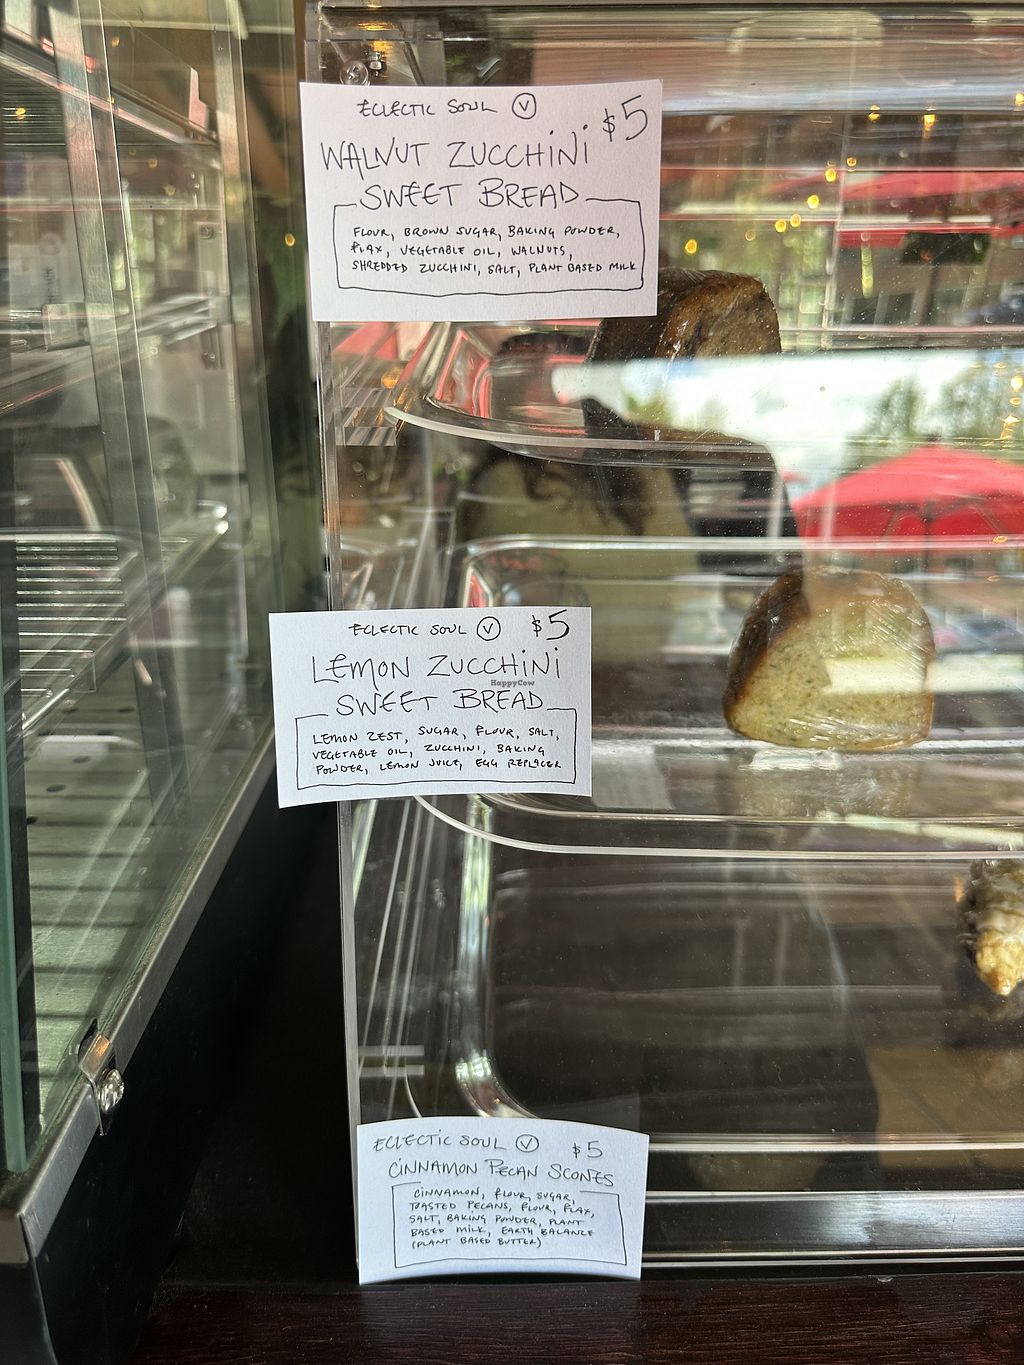 ECLECTIC SOUL Ⓥ $5
WALNUT ZUCCHINI
SWEET BREAD
FLOUR, BROWN SUGAR, BAKING POWDER,
FLAX, VEGETABLE OIL, WALNUTS,
SHREDDED ZUCCHINI, SALT, PLANT BASED MILK
ECLECTIC SOUL Ⓥ $5
LEMON ZUCCHINI
HappyCow
SWEET BREAD
LEMON ZEST, SUGAR, FLOUR, SALT,
VEGETABLE OIL, ZUCCHINI, BAKING
POWDER, LEMON JUICE, EGG REPLACER
ECLECTIC SOUL Ⓥ $5
CINNAMON PECAN SCONES
CINNAMON, FLOUR, SUGAR,
TOASTED PECANS, FLOUR, FLAX,
SALT, BAKING POWDER, PLANT
BASED MILK, EARTH BALANCE
(PLANT BASED BUTTER)